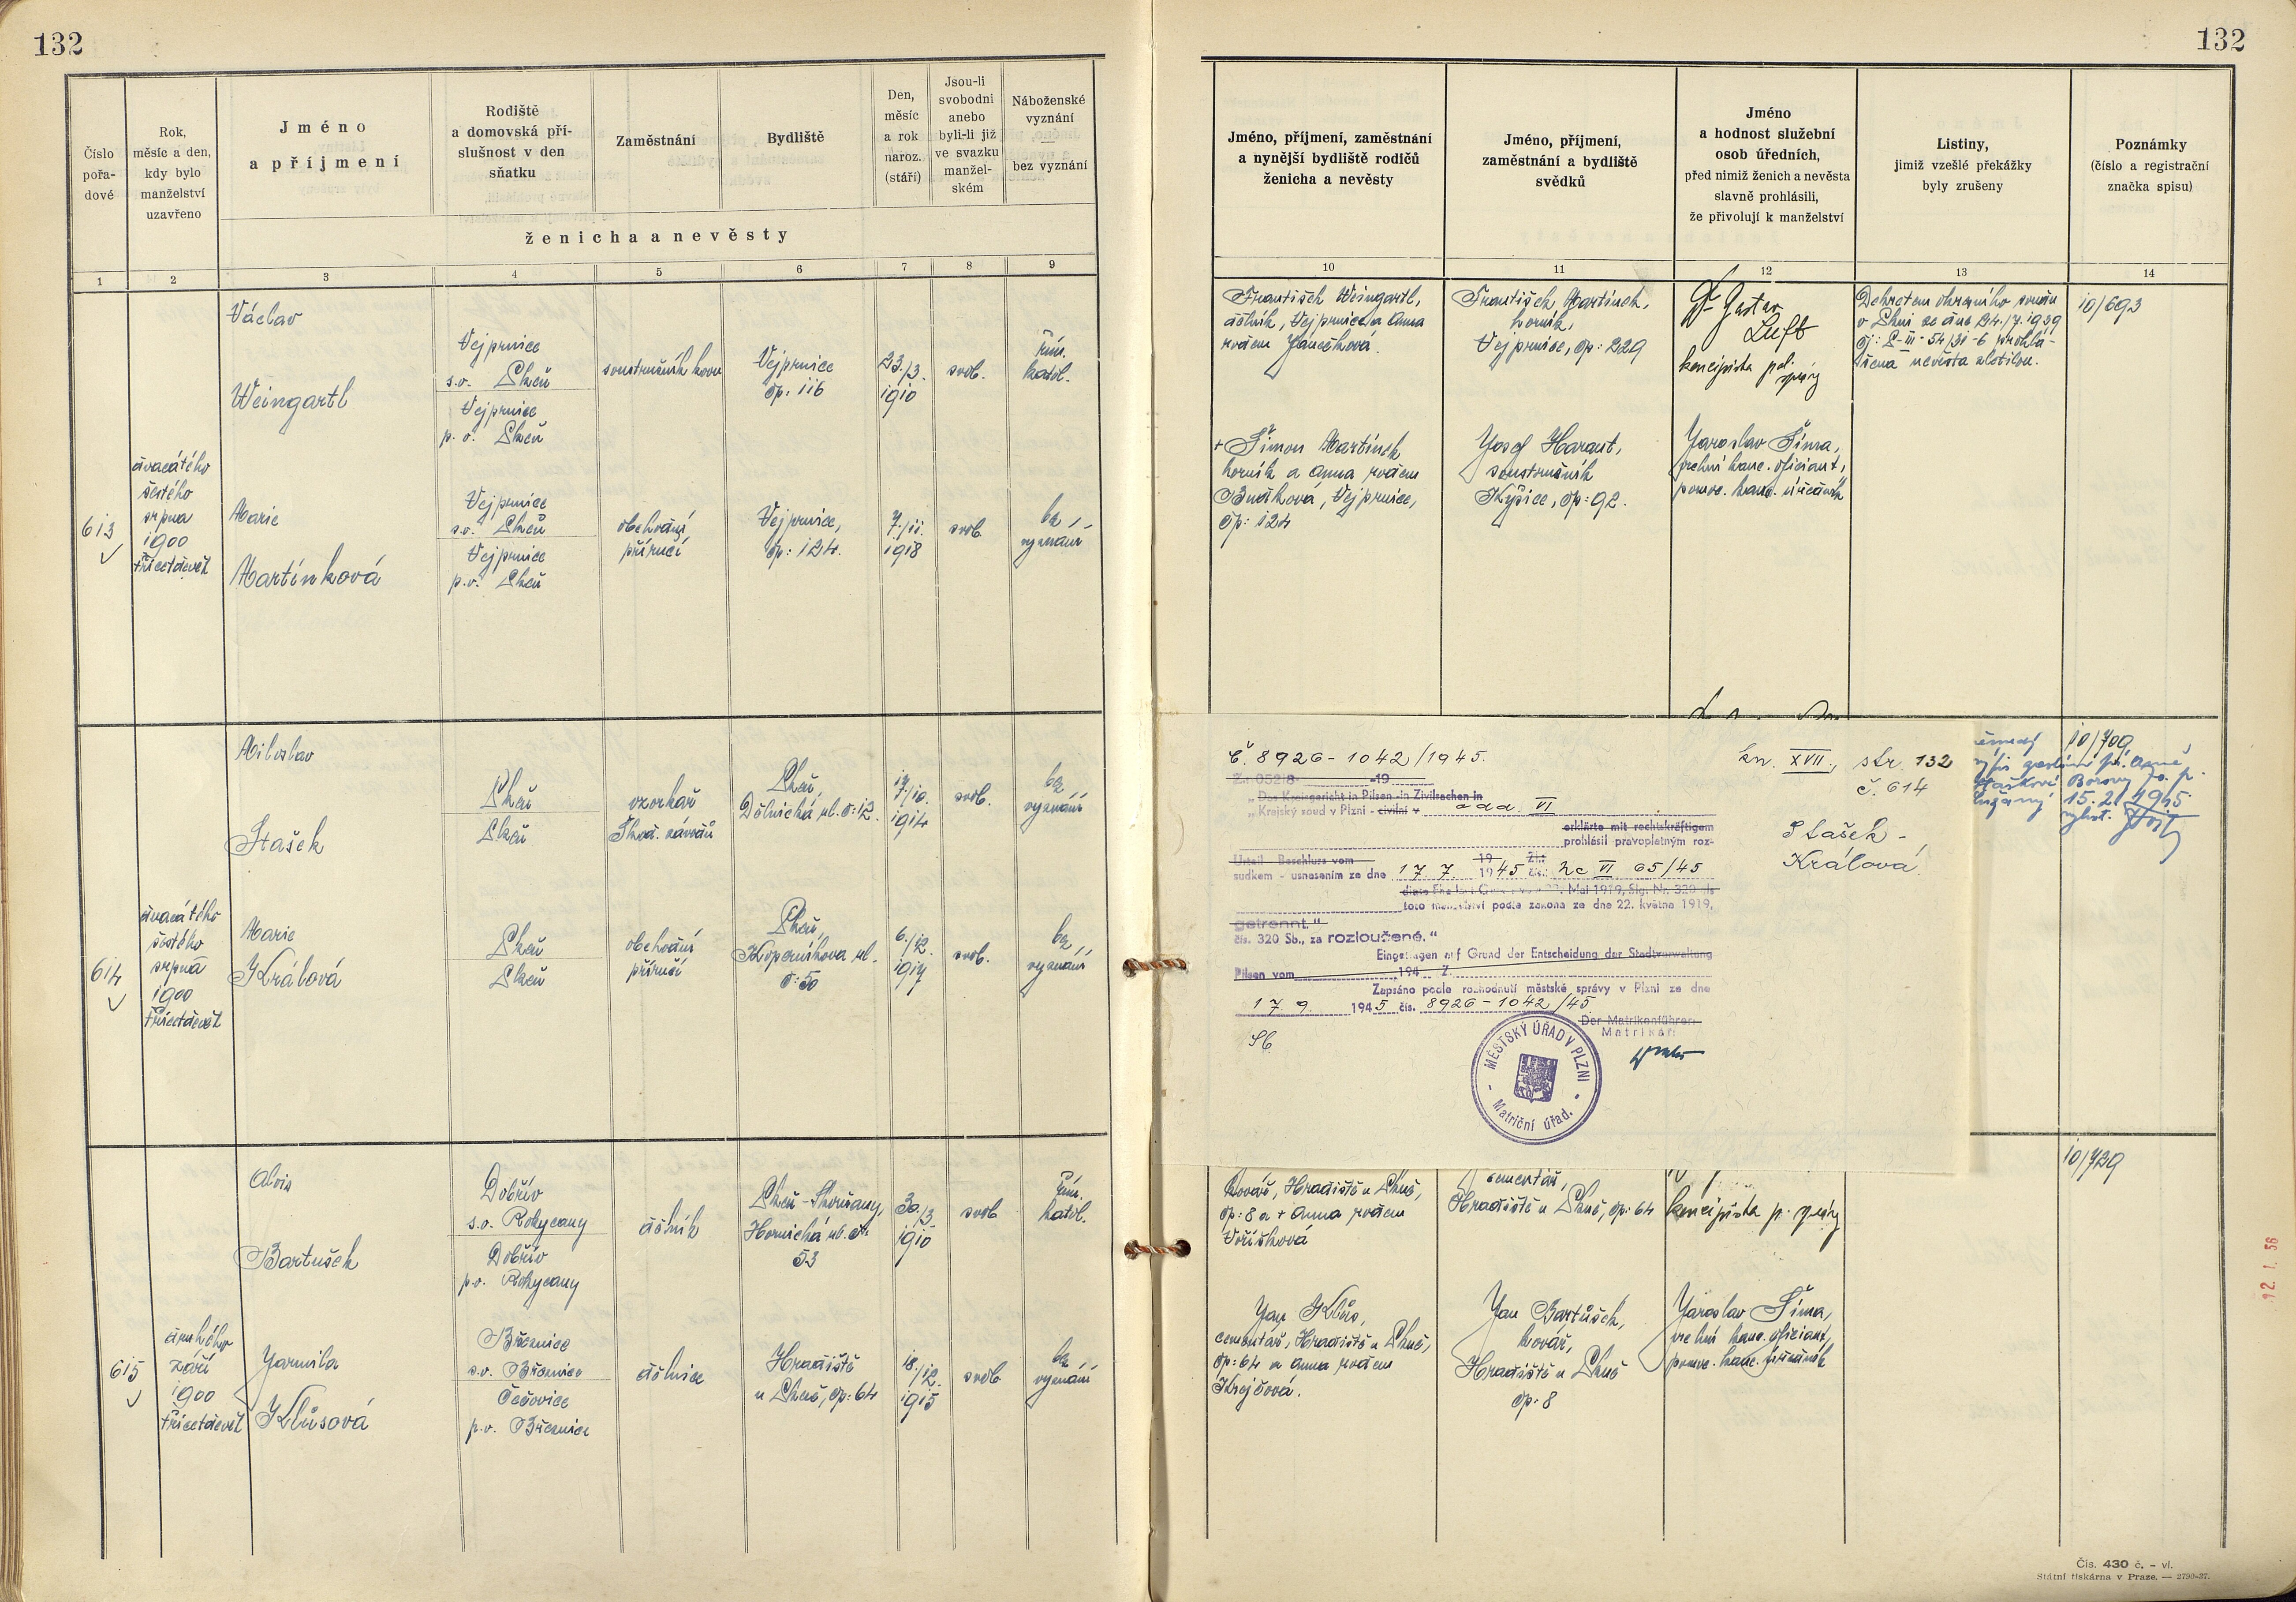 132
132
Číslo
pořa-
dové
Rok,
měsíc a den,
kdy bylo
manželství
uzavřeno
Jméno
a příjmení
Rodiště
a domovská pří-
slušnost v den
sňatku
Zaměstnání
Bydliště
Den,
měsíc
a rok
naroz.
(stáří)
Jsou-li
svobodni
anebo
byli-li již
ve svazku
manžel-
ském
Náboženské
vyznání
—
bez vyznání
ženicha a nevěsty
1 2 3 4 5 6 7 8 9
Jméno, příjmení, zaměstnání
a nynější bydliště rodičů
ženicha a nevěsty
Jméno, příjmení,
zaměstnání a bydliště
svědků
Jméno
a hodnost služební
osob úředních,
před nimiž ženich a nevěsta
slavně prohlásili,
že přivolují k manželství
Listiny,
jimiž vzešlé překážky
byly zrušeny
Poznámky
(číslo a registrační
značka spisu)
10 11 12 13 14
613
dvacátého
šestého
srpna
1900
třicetdevět
Václav
Weingartl
Vejprnice
s.o. Plzeň
Vejprnice
p.o. Plzeň
soustružník kovů
Vejprnice
čp: 116
23./3.
1910
svob.
řím.
katol.
Marie
Martínková
Vejprnice
s.o. Plzeň
Vejprnice
p.o. Plzeň
obchodní
příručí
Vejprnice,
čp: 124.
7./11.
1918
svob.
bez
vyznání
František Weingartl,
dělník, Vejprnice a Anna
rodem Janečková.
František Martínek,
horník,
Vejprnice, čp: 229
Dr Gustav
Luft
koncipista pol.
správy
Dekretem okresního soudu
v Plzni ze dne 24./7. 1939
čj: P-III-54/31-6 prohlá-
šena nevěsta zletilou.
10/693
+ Šimon Martínek
horník a Anna rodem
Budková, Vejprnice,
čp: 124
Josef Haraut,
soustružník
Kyšice, čp: 92.
Jaroslav Šíma,
vrchní kanc. oficiant,
pomoc. kanc. úředník
614
dvacátého
šestého
srpna
1900
třicetdevět
Miloslav
Stašek
Plzeň
Plzeň
vzorkař
Škod. závodů
Plzeň,
Dělnická ul. č: 12.
17./10.
1914
svob.
bez
vyznání
Marie
Králová
Plzeň
Plzeň
obchodní
příručí
Plzeň,
Koperníkova ul.
č: 50
6./12.
1917
svob.
bez
vyznání
Č. 8926-1042/1945.
19
„Das Kreisgericht in Pilsen - in Zivilsachen in
„Krejský soud v Plzni - civilní v odd. VI
erklärte mit rechtskräftigem
prohlásil pravoplatným roz-
Urteil - Beschluss vom 19 Zl:
sudkem - usnesením ze dne 17. 7. 1945 čís: Nc VI 65/45
toto manželství podle zákona ze dne 22. května 1919,
getrennt."
čís. 320 Sb., za rozloučené."
Eingetragen auf Grund der Entscheidung der Stadtverwaltung
Pilsen vom 194 Z.
Zapsáno podle rozhodnutí městské správy v Plzni ze dne
17. 9. 1945 čís. 8926-1042/45
Der Matrikenführer
Matrikář:
MĚSTSKÝ ÚŘAD V PLZNI
Matriční úřad.
kn. XVII., str. 132
č. 614
Stašek -
Králová
10/709
15. 2. 1945
615
druhého
září
1900
třicetdevět
Alois
Bartušek
Dobřív
s.o. Rokycany
Dobřív
p.o. Rokycany
dělník
Plzeň-Skvrňany,
Hornická ul. č:
53
30./3.
1910
svob.
řím.
katol.
Jarmila
Klůsová
Březnice
s.o. Březnice
Čečovice
p.o. Březnice
dělnice
Hradiště
u Plzně, čp: 64
18./12.
1915
svob.
bez
vyznání
kovář, Hradiště u Plzně,
čp: 8 a + Anna rodem
Voříšková
cementář,
Hradiště u Plzně, čp: 64
koncipista p. správy
10/729
Jan Klůs,
cementář, Hradiště u Plzně,
čp: 64 a Anna rodem
Krejčová.
Jan Bartůšek,
kovář,
Hradiště u Plzně
čp: 8
Jaroslav Šíma,
vrchní kanc. oficiant,
pomoc. kanc. úředník
12. 1. 56
Čís. 430 č. - vl.
Státní tiskárna v Praze. — 2790-37.